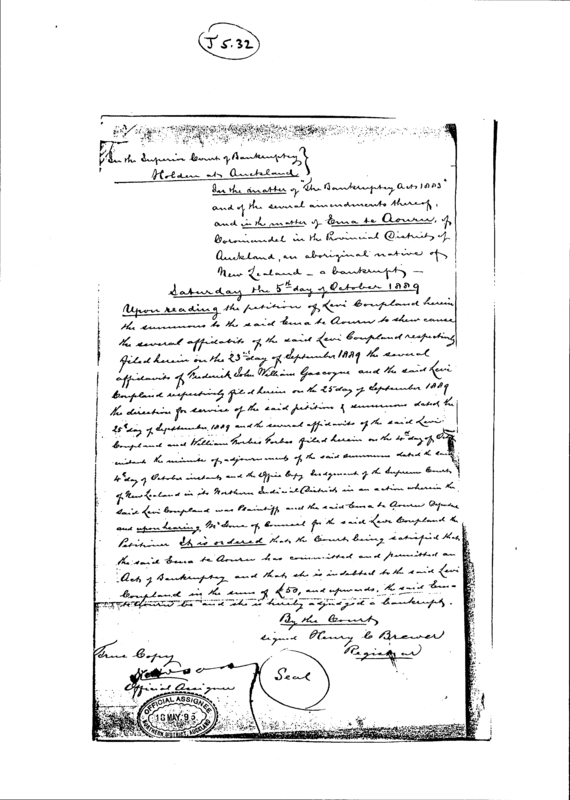 J 5.32
In the Superior Court of Bankruptcy
Holden at Auckland
In the matter of "The Bankruptcy Acts 1883"
and of the several amendments thereof,
and in the matter of Ema te Aouru, of
Coromandel in the Provincial District of
Auckland, an aboriginal native of
New Zealand - a bankrupt -
Saturday the 5th day of October 1889
Upon reading the petition of Levi Coupland herein
the summons to the said Ema te Aouru to shew cause
the several affidavits of the said Levi Coupland respectively
filed herein on the 23rd day of September 1889 the several
affidavits of Frederick John William Gascoyne and the said Levi
Coupland respectively filed herein on the 25 day of September 1889
the direction for service of the said petition & summons dated the
25th day of September 1889 and the several affidavits of the said Levi
Coupland and William Forbes Forbes filed herein on the 4th day of
instant the minute of adjournment of the said summons dated the said
4th day of October instant and the Office Copy Judgement of the Supreme Court
of New Zealand in its Northern Judicial District in an action wherein the
said Levi Coupland was Plaintiff and the said Ema te Aouru Defendant
and upon hearing Mr of Counsel for the said Levi Coupland the
Petitioner It is ordered that the Court being satisfied that
the said Ema te Aouru has committed and permitted an
Act of Bankruptcy and that she is indebted to the said Levi
Coupland in the sum of £50, and upwards, the said Ema
te Aouru be and she is hereby adjudged a bankrupt.
By the Court
signed Henry C Brewer
Registrar
True Copy
Official Assignee
Seal
OFFICIAL ASSIGNEE
16 MAY.95
NORTHERN DISTRICT, AUCKLAND